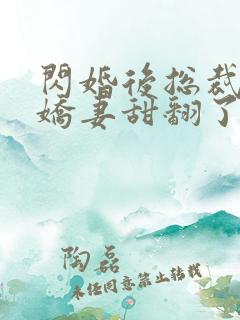 閃婚後總裁
嬌妻甜翻了
陶磊
未经同意禁止转载